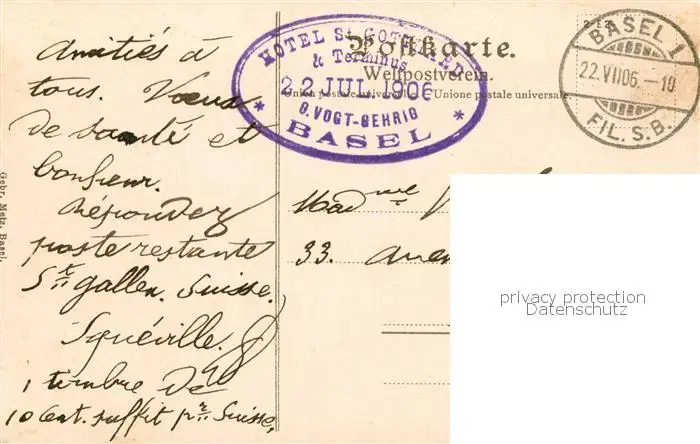 Amitiés à
tous. Voeux
de santé et
bonheur.
Répondez
poste restante
St. Gallen. Suisse.
1 timbre de
10 Cent. suffit pr. Suisse.
Gebr. Metz, Basel.
HOTEL St. GOTTHARD
& Terminus
22 JUL. 1906
O. VOGT-GEHRIG
BASEL
Postkarte.
Weltpostverein.
Union postale universelle. Unione postale universale.
BASEL 1
22.VII.06.–10
FIL. S. B.
Madme V
33. Aven
privacy protection
Datenschutz